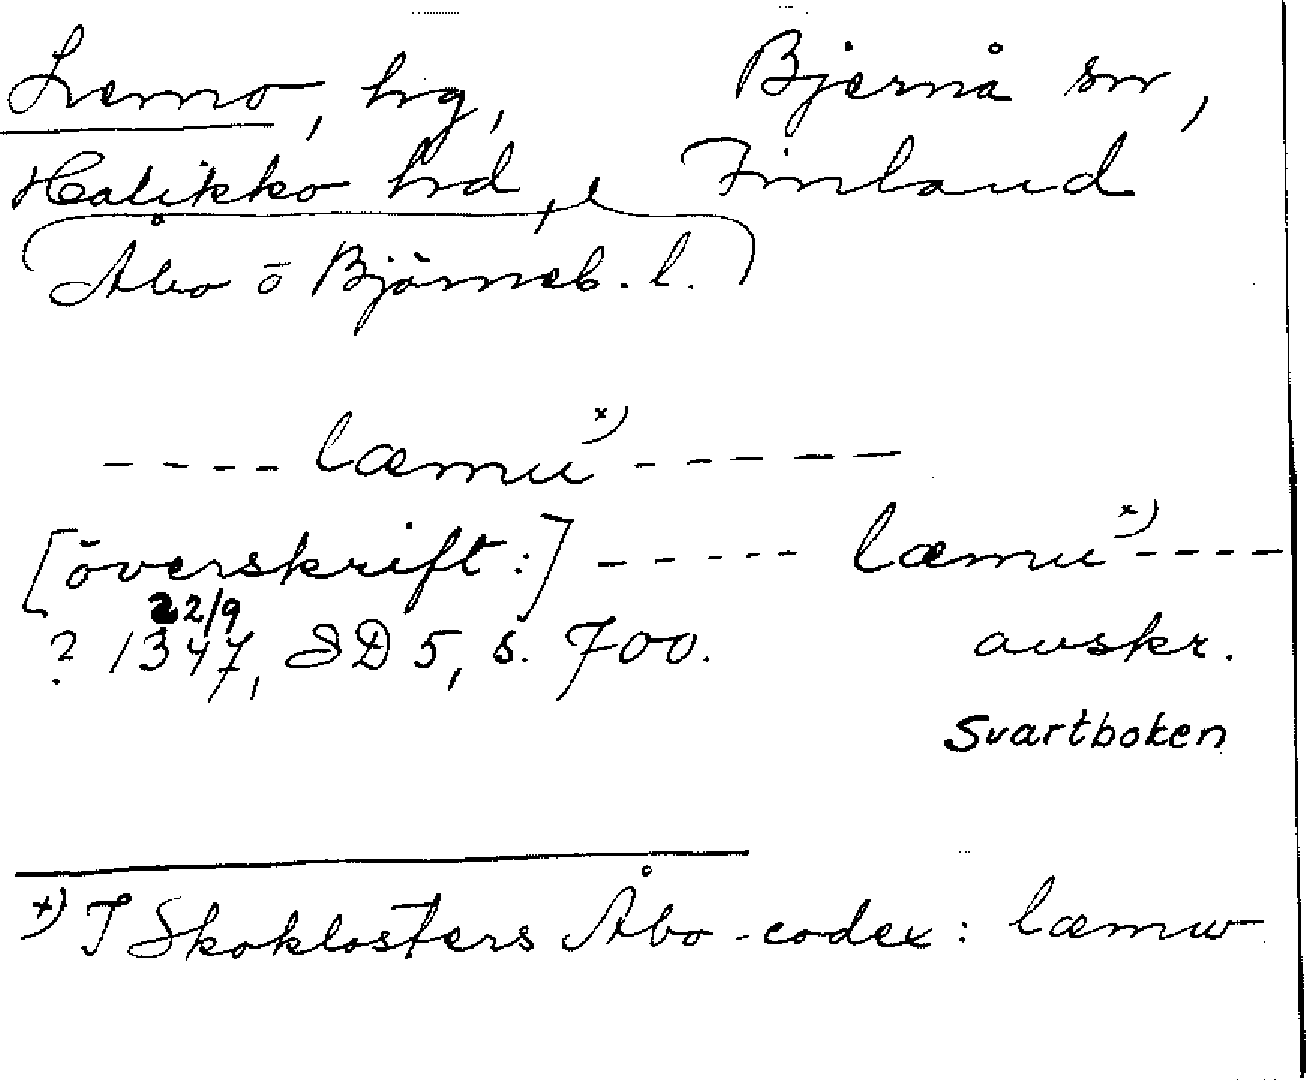 Lemo, hg, Bjernå sn,
Halikko hd, Finland
Åbo o Björneb. l.
---- læmu x) -----
[överskrift:] ----- læmu x) ----
22/9
? 1347, SD 5, s. 700. avskr.
Svartboken
x) I Skoklosters Åbo-codex: læmw